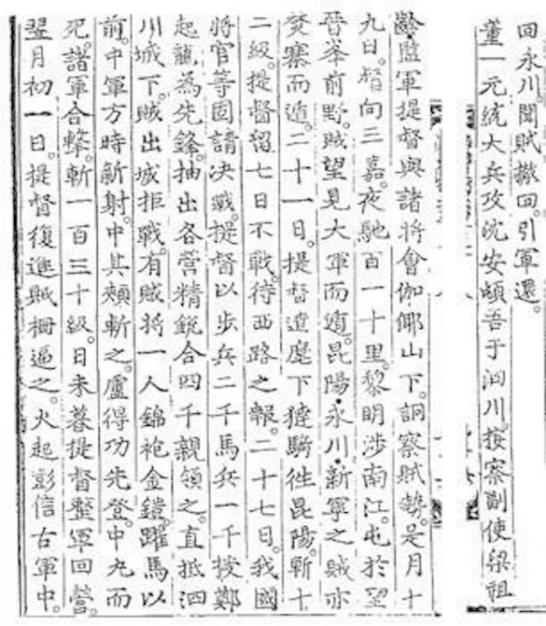 回永川。聞賊撤回。引軍還。
董一元統大兵攻沈安頓吾于泗川。按察副使梁祖
齡監軍提督與諸將會伽倻山下。詗察賊勢。是月十
九日。督向三嘉。夜馳百一十里。黎明涉南江。屯於望
晉峯前野。賊望見大軍而遁。昆陽・永川・新寧之賊亦
焚寨而遁。二十一日。提督遣麾下㺚騎徃昆陽。斬十
二級。提督留七日不戰。待西路之報。二十七日。我國
將官等固請決戰。提督以步兵二千馬兵一千授鄭
起龍為先鋒。抽出各營精銳合四千親領之。直抵泗
川城下。賊出城拒戰。有賊將一人錦袍金鎧。躍馬以
前。中軍方時新射。中其頰斬之。盧得功先登。中丸而
死。諸軍合擊。斬一百三十級。日未暮提督整軍回營。
翌月初一日。提督復進賊柵逼之。火起彭信古軍中。